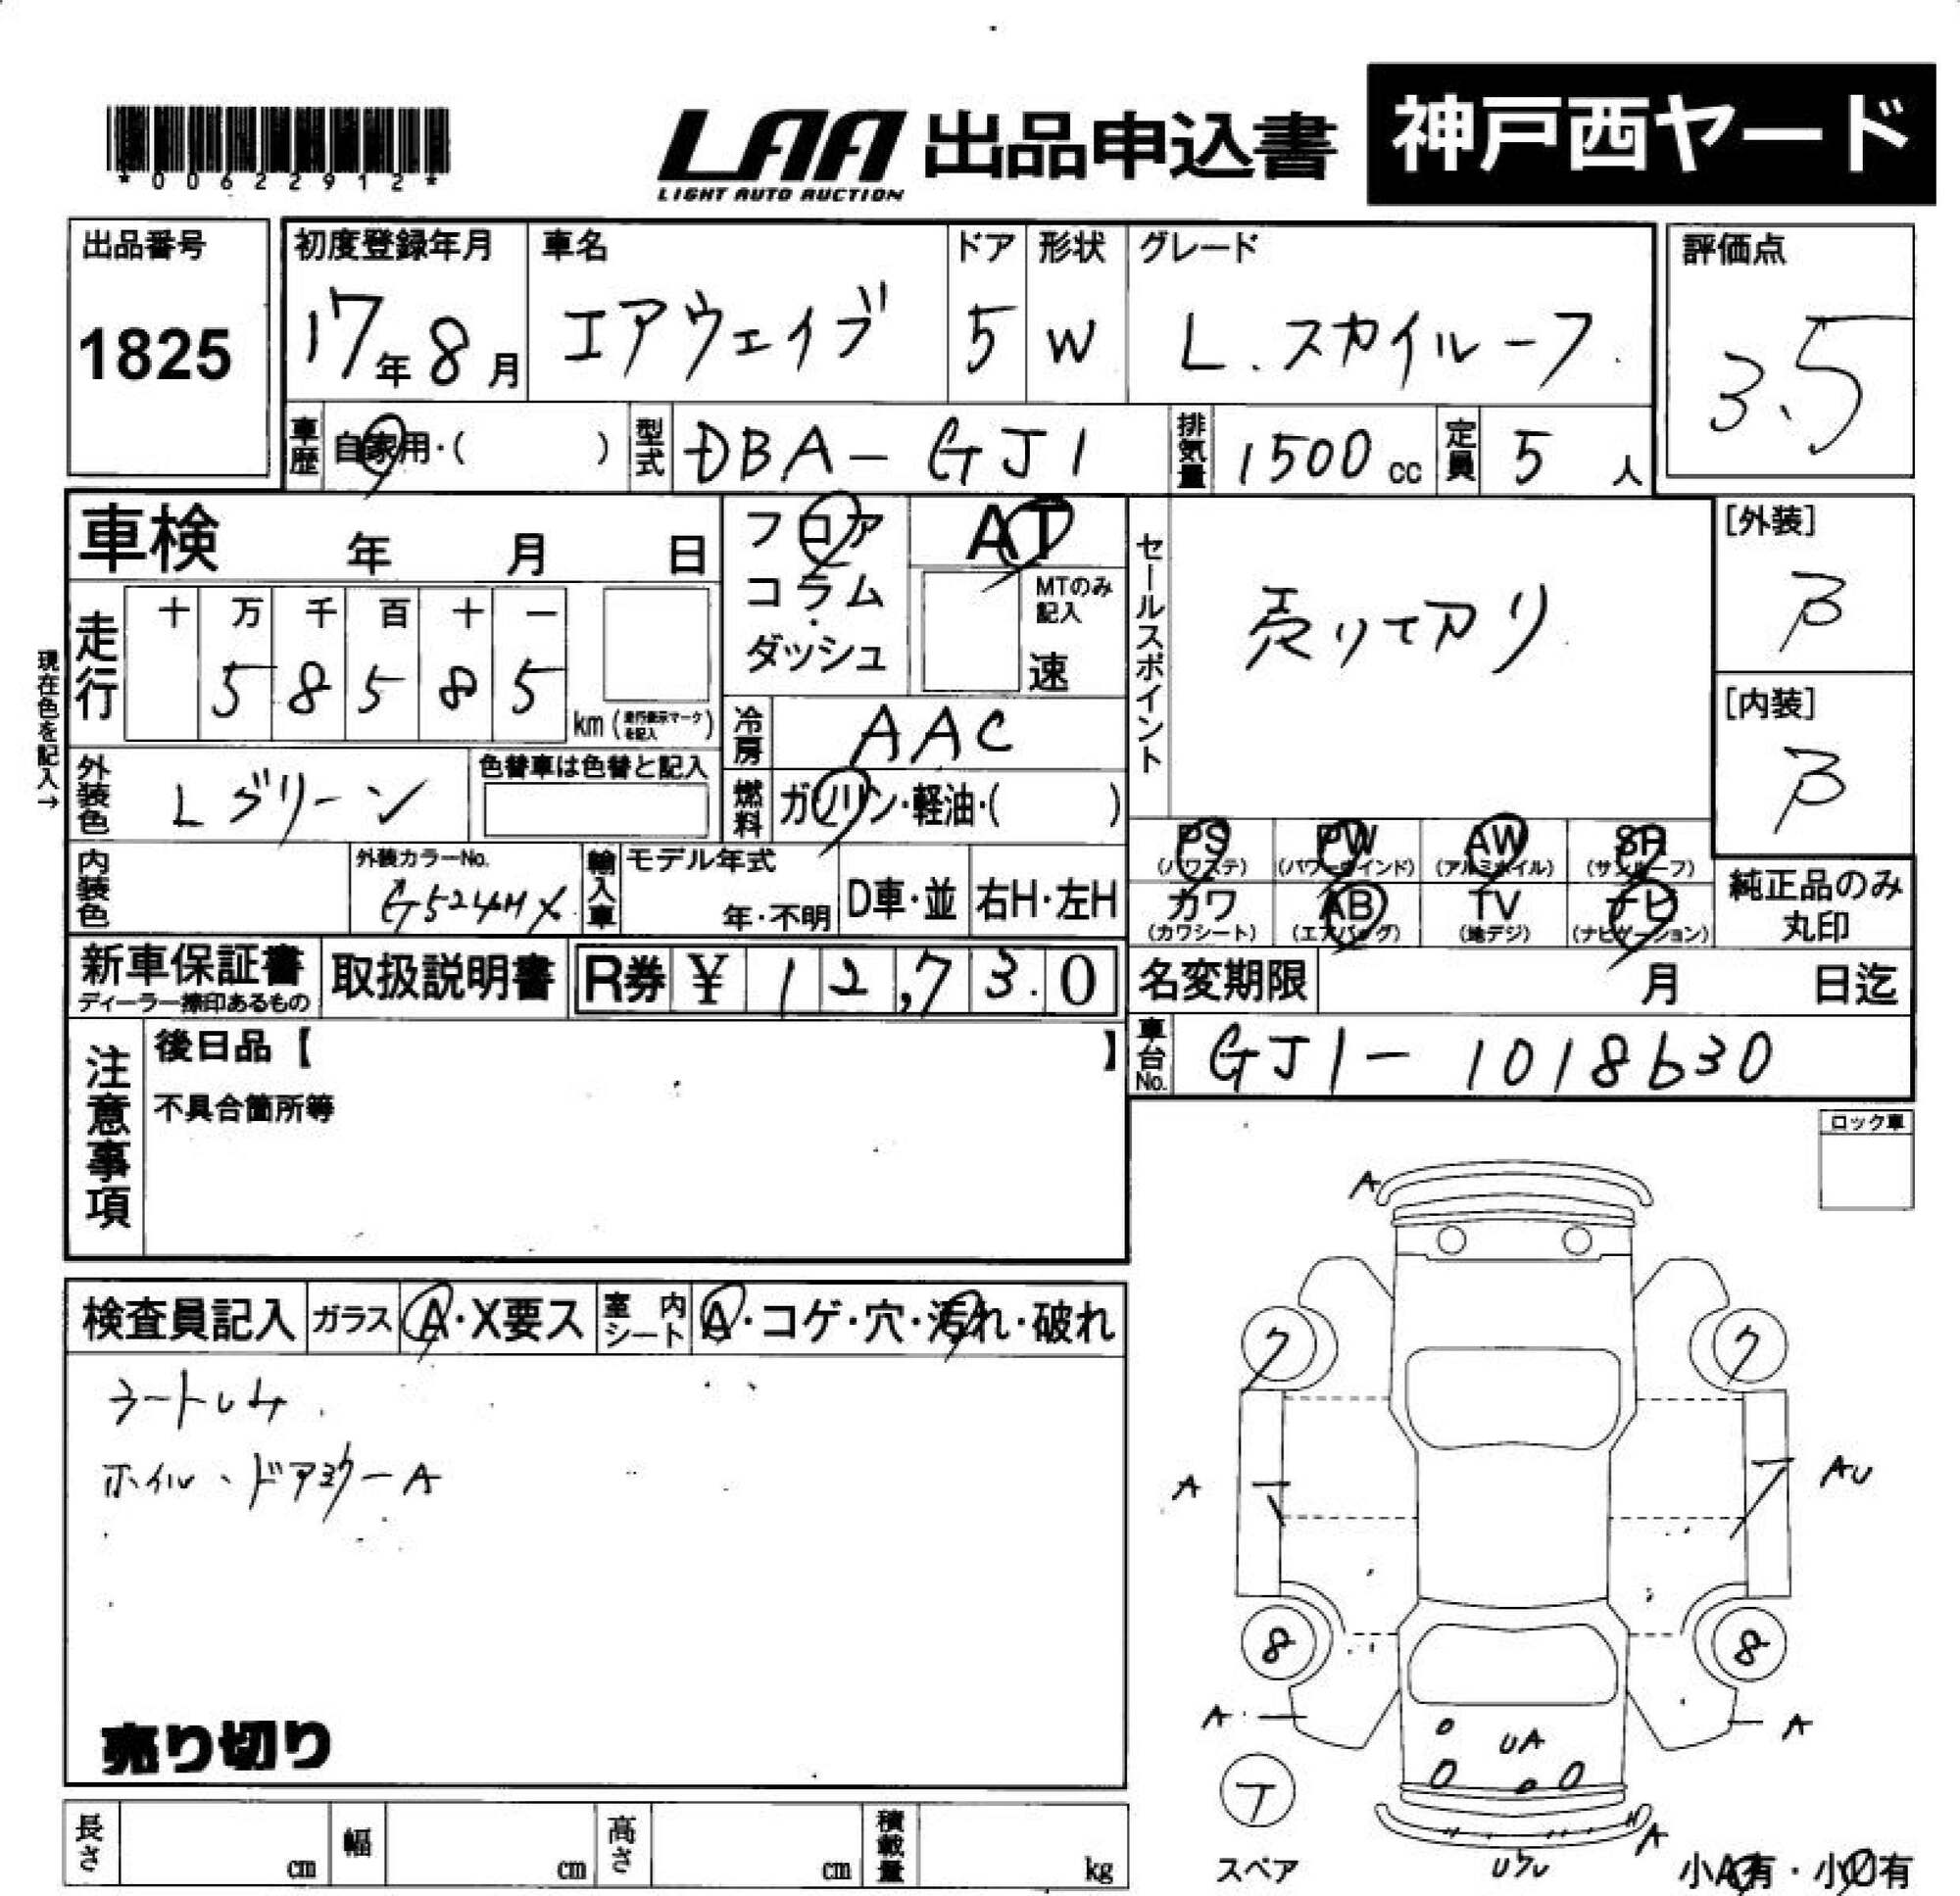 *00622912*
LAA 出品申込書 神戸西ヤード
LIGHT AUTO AUCTION
出品番号 初度登録年月 車名 ドア 形状 グレード 評価点
1825 17年8月 エアウェイブ 5 W L.スカイルーフ 3.5
車歴 自家用・( ) 型式 DBA-GJ1 排気量 1500cc 定員 5人
車検 年 月 日 フロア AT
コラム MTのみ記入
ダッシュ 速
セールスポイント 売りて アリ
[外装] B
[内装] B
現在色を記入→
走行 十 万 千 百 十 一
5 8 5 8 5 km (走行表示マークを記入)
冷房 AAC
外装色 Lグリーン 色替車は色替と記入 燃料 ガソリン・軽油・( )
PS (パワステ) PW (パワーウインド) AW (アルミホイル) SR (サンルーフ)
カワ (カワシート) AB (エアバッグ) TV (地デジ) ナビ (ナビゲーション)
純正品のみ丸印
内装色 外装カラーNo. G524MX 輸入車 モデル年式 年・不明 D車・並 右H・左H
新車保証書 取扱説明書 R券 ¥ 12,730 名変期限 月 日迄
ディーラー捺印あるもの
車台No. GJ1-1018630
注意事項 後日品【 】
不具合箇所等
ロック車
検査員記入 ガラス A・X要ス 室内シート A・コゲ・穴・汚れ・破れ
ホイル、ドアミラーA
売り切り
A
ク ク
A AU
8 8
A A
UA
T
A
スペア 小A有・小U有
長さ cm 幅 cm 高さ cm 積載量 kg